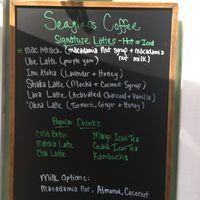 Seaglass Coffee
Signature Lattes - Hot or Iced
* Mac Attack (macadamia nut syrup + macadamia nut milk)
Ube Latte (purple yam)
Imu Aloha (Lavender + Honey)
Shaka Latte (Mocha + Coconut Syrup)
Lava Latte (Activated Charcoal + Vanilla)
Olena Latte (Turmeric, Ginger + Honey)
Popular Drinks
Cold Brew
Mango Iced Tea
Matcha Latte
Guava Iced Tea
Chai Latte
Kombucha
Milk Options:
Macadamia Nut, Almond, Coconut